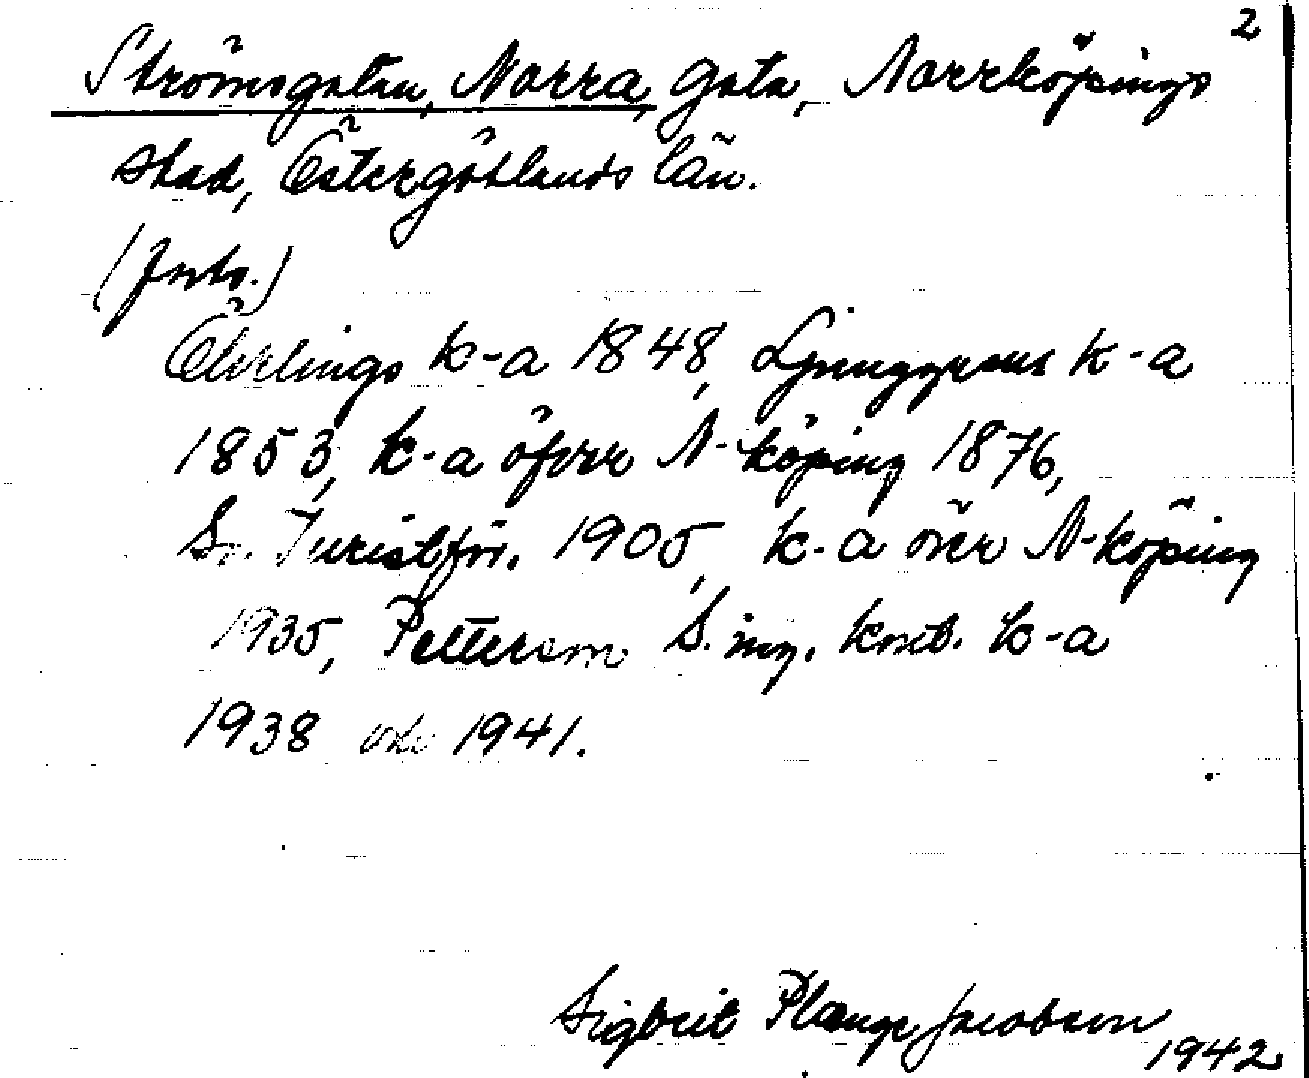 2
Strömsgatan, Norra, gata, Norrköpings
stad, Östergötlands län.
(forts.)
Öhrlings k-a 1848, Ljunggrens k-a
1853, k-a öfver N-köping 1876,
Sv. Turistför. 1905, k-a över N-köping
1935, Petterson S. ing. kont. k-a
1938 och 1941.
Sigbrit Plænge Jacobson
1942